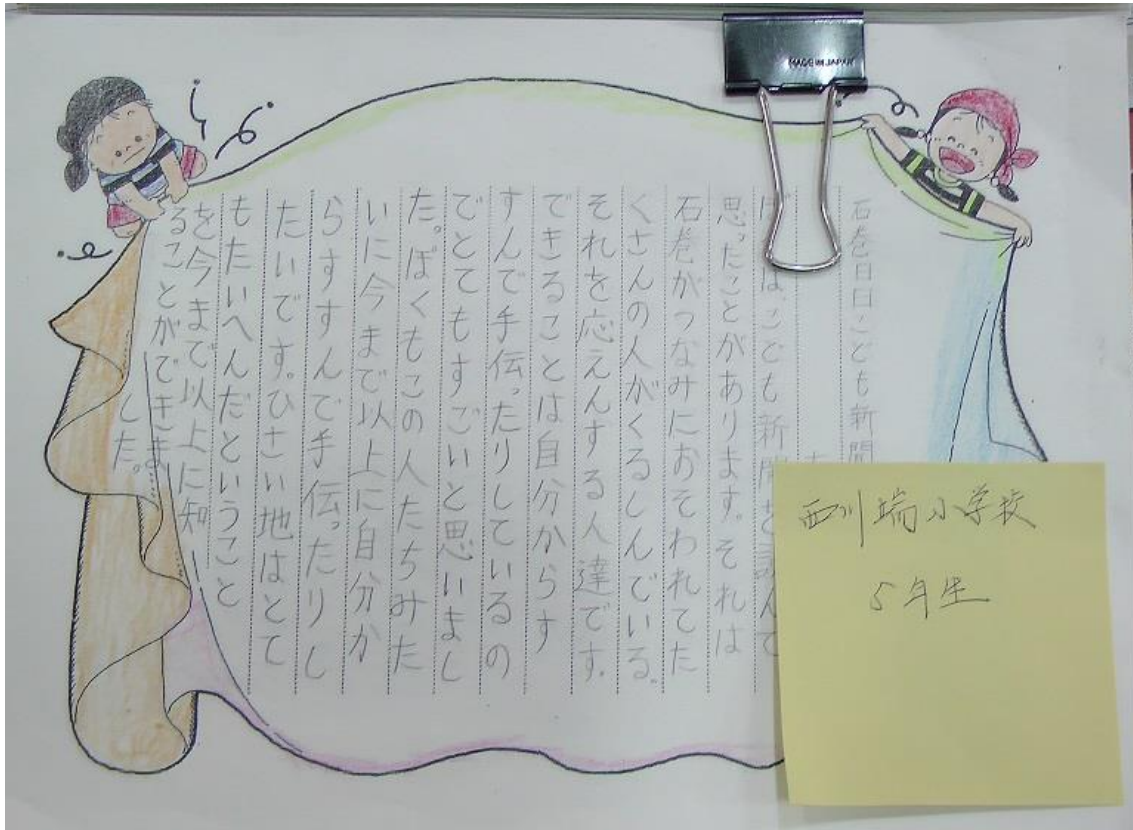 MADE IN JAPAN
石巻日日こども新聞
は、こども新聞を読んで
思ったことがあります。それは
石巻がつなみにおそわれてた
くさんの人がくるしんでいる。
それを応えんする人達です。
できることは自分からす
すんで手伝ったりしているの
でとてもすごいと思いまし
た。ぼくもこの人たちみた
いに今まで以上に自分か
らすすんで手伝ったりし
たいです。ひさい地はとて
もたいへんだということ
を今まで以上に知
ることができま
した。
西川端小学校
5年生